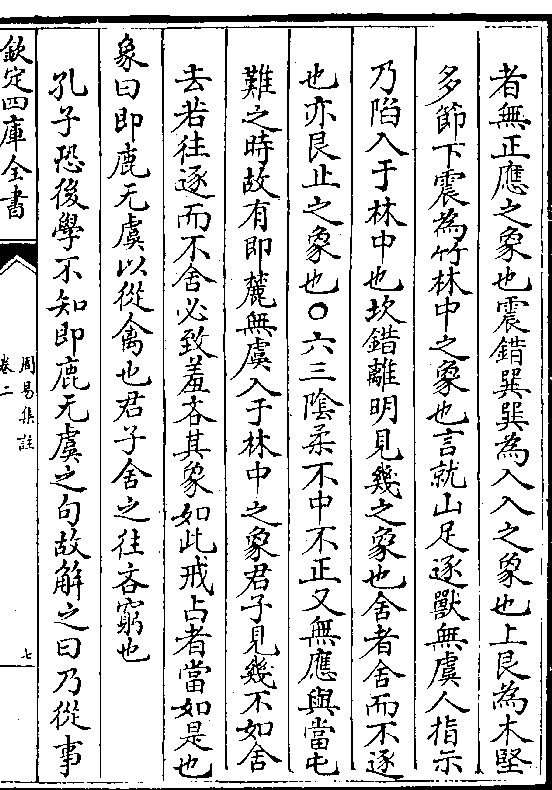 者無正應之象也震錯巽巽為入入之象也上艮為木堅
多節下震為竹林中之象也言就山足逐獸無虞人指示
乃陷入于林中也坎錯離明見幾之象也舍者舍而不逐
也亦艮止之象也○六三陰柔不中不正又無應與當屯
難之時故有即麓無虞入于林中之象君子見幾不如舍
去若往逐而不舍必致羞吝其象如此戒占者當如是也
象曰即鹿无虞以從禽也君子舍之往吝窮也
孔子恐後學不知即鹿无虞之句故解之曰乃從事
欽定四庫全書
周易集註
卷二
七